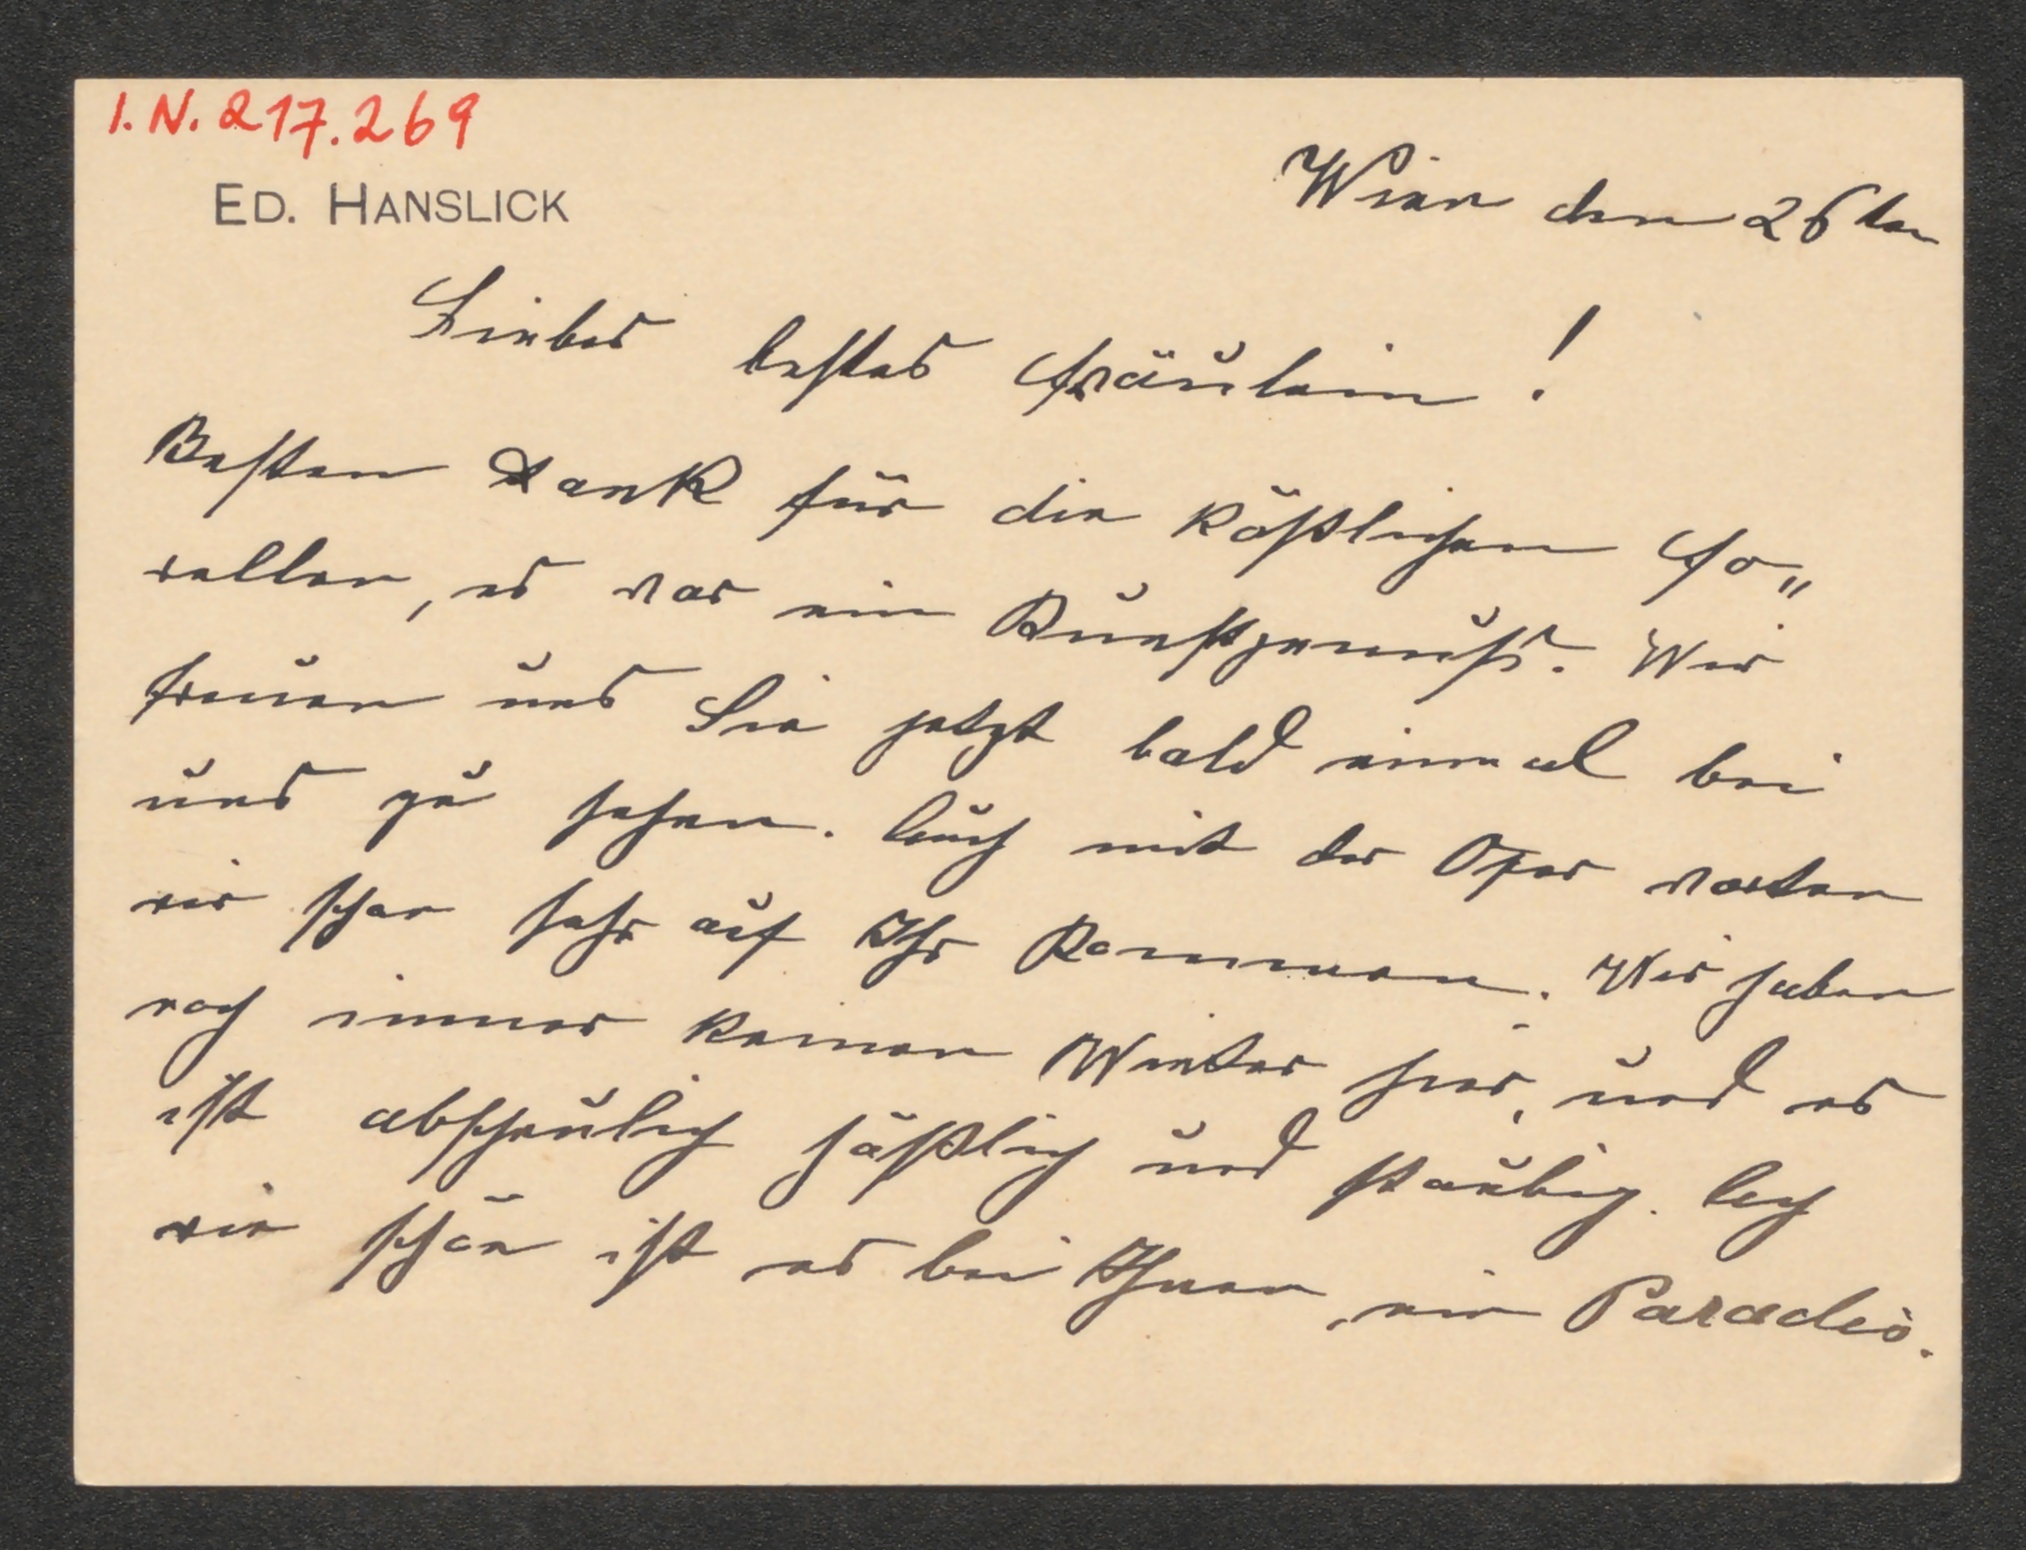 I.N. 217.269
ED. HANSLICK
Wien den 26ten
Liebes bestes Fräulein!
Besten Dank für die köstlichen Fo„
rellen, es war ein Kunstgenuß. Wir
freuen uns Sie jetzt bald einmal bei
uns zu sehen. Auch mit der Oper warten
wir schon sehr auf Ihr Kommen. Wir haben
noch immer keinen Winter hier, und es
ist abscheulich häßlich und staubig. Ach
wie schön ist es bei Ihnen, ein Paradis.